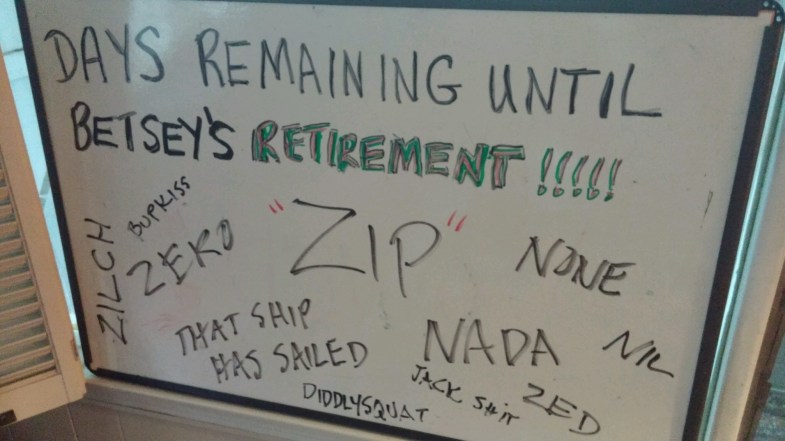 DAYS REMAINING UNTIL
BETSEY'S RETIREMENT !!!!!
ZILCH
BUPKISS
ZERO
"ZIP"
NONE
THAT SHIP
HAS SAILED
NADA
NIL
JACK SHIT
ZED
DIDDLYSQUAT